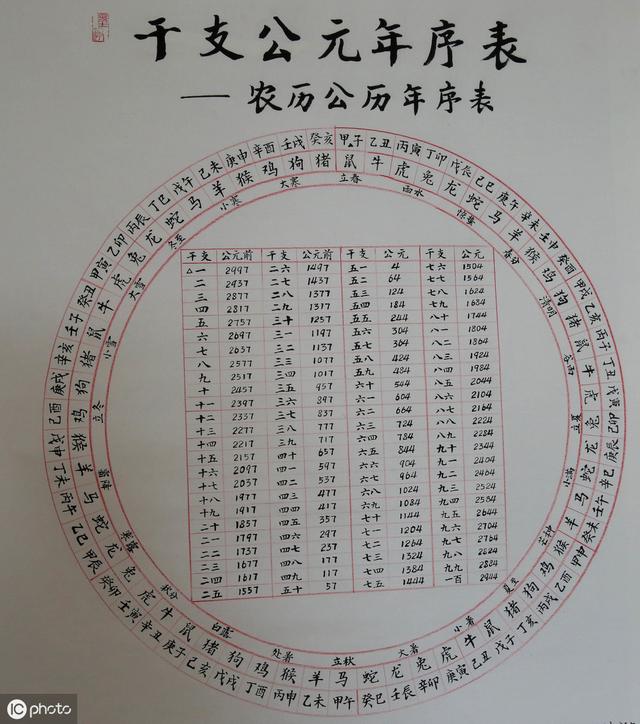 干支公元年序表
——农历公历年序表
甲子 乙丑 丙寅 丁卯 戊辰 己巳 庚午 辛未 壬申 癸酉 甲戌 乙亥 丙子 丁丑 戊寅 己卯 庚辰 辛巳 壬午 癸未 甲申 乙酉 丙戌 丁亥 戊子 己丑 庚寅 辛卯 壬辰 癸巳 甲午 乙未 丙申 丁酉 戊戌 己亥 庚子 辛丑 壬寅 癸卯 甲辰 乙巳 丙午 丁未 戊申 己酉 庚戌 辛亥 壬子 癸丑 甲寅 乙卯 丙辰 丁巳 戊午 己未 庚申 辛酉 壬戌 癸亥
鼠 牛 虎 兔 龙 蛇 马 羊 猴 鸡 狗 猪 鼠 牛 虎 兔 龙 蛇 马 羊 猴 鸡 狗 猪 鼠 牛 虎 兔 龙 蛇 马 羊 猴 鸡 狗 猪 鼠 牛 虎 兔 龙 蛇 马 羊 猴 鸡 狗 猪 鼠 牛 虎 兔 龙 蛇 马 羊 猴 鸡 狗 猪
立春 雨水 惊蛰 春分 清明 谷雨 立夏 小满 芒种 夏至 小暑 大暑 立秋 处暑 白露 秋分 寒露 霜降 立冬 小雪 大雪 冬至 小寒 大寒
干支 公元前 干支 公元前 干支 公元 干支 公元
△一 2997 二六 1497 五一 4 七六 1504
二 2937 二七 1437 五二 64 七七 1564
三 2877 二八 1377 五三 124 七八 1624
四 2817 二九 1317 五四 184 七九 1684
五 2757 三十 1257 五五 244 八十 1744
六 2697 三一 1197 五六 304 八一 1804
七 2637 三二 1137 五七 364 八二 1864
八 2577 三三 1077 五八 424 八三 1924
九 2517 三四 1017 五九 484 八四 1984
十 2457 三五 957 六十 544 八五 2044
十一 2397 三六 897 六一 604 八六 2104
十二 2337 三七 837 六二 664 八七 2164
十三 2277 三八 777 六三 724 八八 2224
十四 2217 三九 717 六四 784 八九 2284
十五 2157 四十 657 六五 844 九十 2344
十六 2097 四一 597 六六 904 九一 2404
十七 2037 四二 537 六七 964 九二 2464
十八 1977 四三 477 六八 1024 九三 2524
十九 1917 四四 417 六九 1084 九四 2584
二十 1857 四五 357 七十 1144 九五 2644
二一 1797 四六 297 七一 1204 九六 2704
二二 1737 四七 237 七二 1264 九七 2764
二三 1677 四八 177 七三 1324 九八 2824
二四 1617 四九 117 七四 1384 九九 2884
二五 1557 五十 57 七五 1444 一百 2944
iC photo